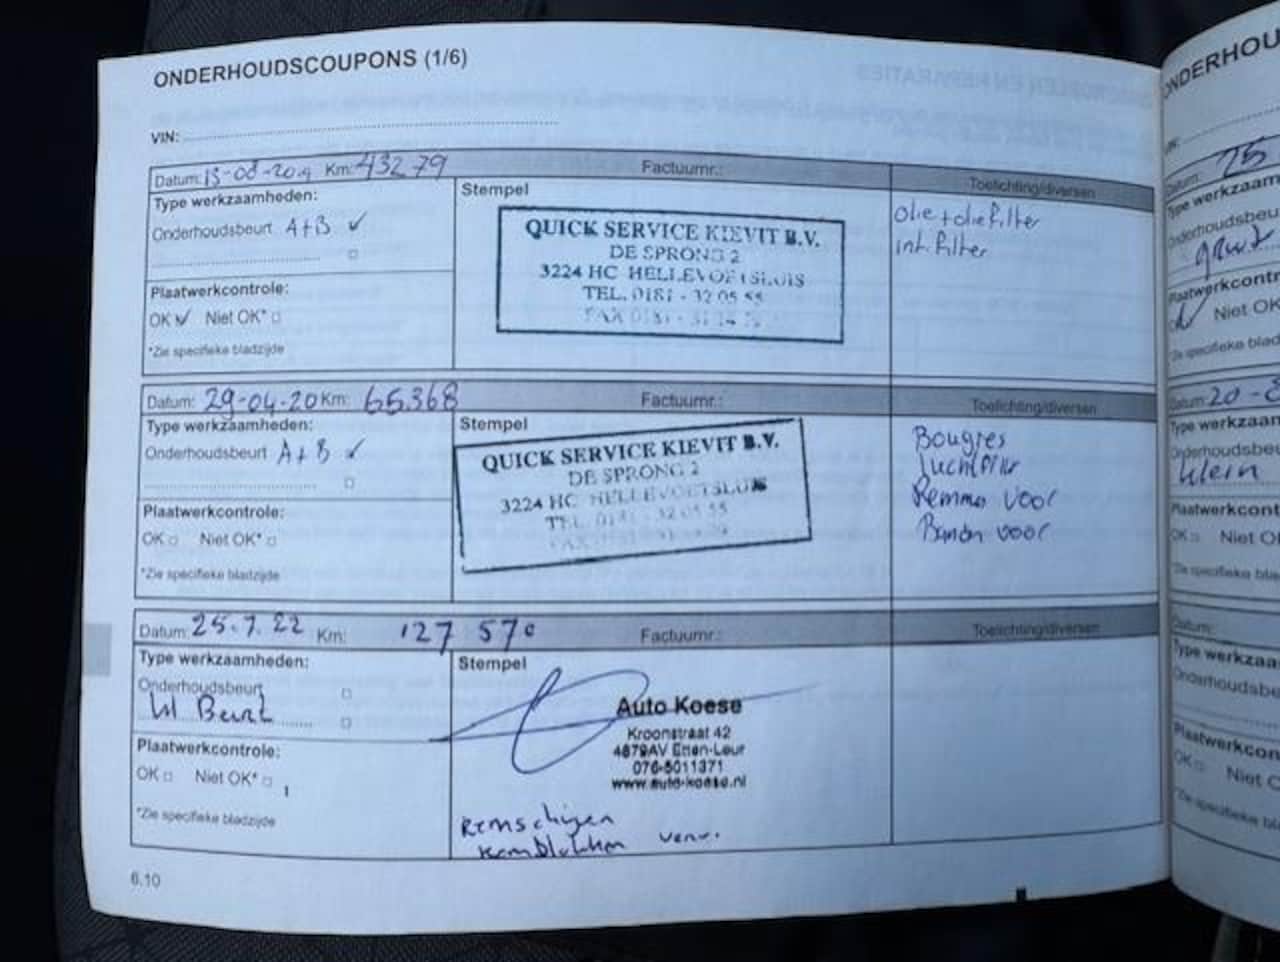 ONDERHOUDSCOUPONS (1/6)
VIN:
Datum: Km: 43279 Factuurnr.: Toelichting/diversen
Type werkzaamheden:
Stempel
Onderhoudsbeurt A+B ✓
QUICK SERVICE KIEVIT B.V.
DE SPRONG 2
3224 HC HELLEVOETSLUIS
TEL. 0181 - 32 05 55
FAX 0181 -
olie + oliefilter
int. filter
Plaatwerkcontrole:
OK ✓ Niet OK*
*Zie specifieke bladzijde
Datum: 29-04-20 Km: 65.368 Factuurnr.: Toelichting/diversen
Type werkzaamheden:
Stempel
Onderhoudsbeurt A+B ✓
QUICK SERVICE KIEVIT B.V.
DE SPRONG 2
3224 HC HELLEVOETSLUIS
TEL. 0181 - 32 05 55
Bougies
Luchtfilter
Remmen voor
voor
Plaatwerkcontrole:
OK Niet OK*
*Zie specifieke bladzijde
Datum: 25.7.22 Km: 127 570 Factuurnr.: Toelichting/diversen
Type werkzaamheden:
Stempel
Onderhoudsbeurt
Beurt
Auto Koese
Kroonstraat 42
4879AV Etten-Leur
076-5011371
www.auto-koese.nl
Plaatwerkcontrole:
OK Niet OK*
*Zie specifieke bladzijde
Remschijven
Remblokken verv.
6.10
ONDERHOU
Datum: 25
Type werkzaam
Onderhoudsbeu
groot
Plaatwerkcontr
Niet OK
*Zie specifieke blad
Datum: 20-
Type werkzaam
Onderhoudsbeu
klein
Plaatwerkcont
OK Niet O
*Zie specifieke bla
Datum:
Type werkzaa
Onderhoudsbe
Plaatwerkcon
OK Niet
*Zie specifieke bl